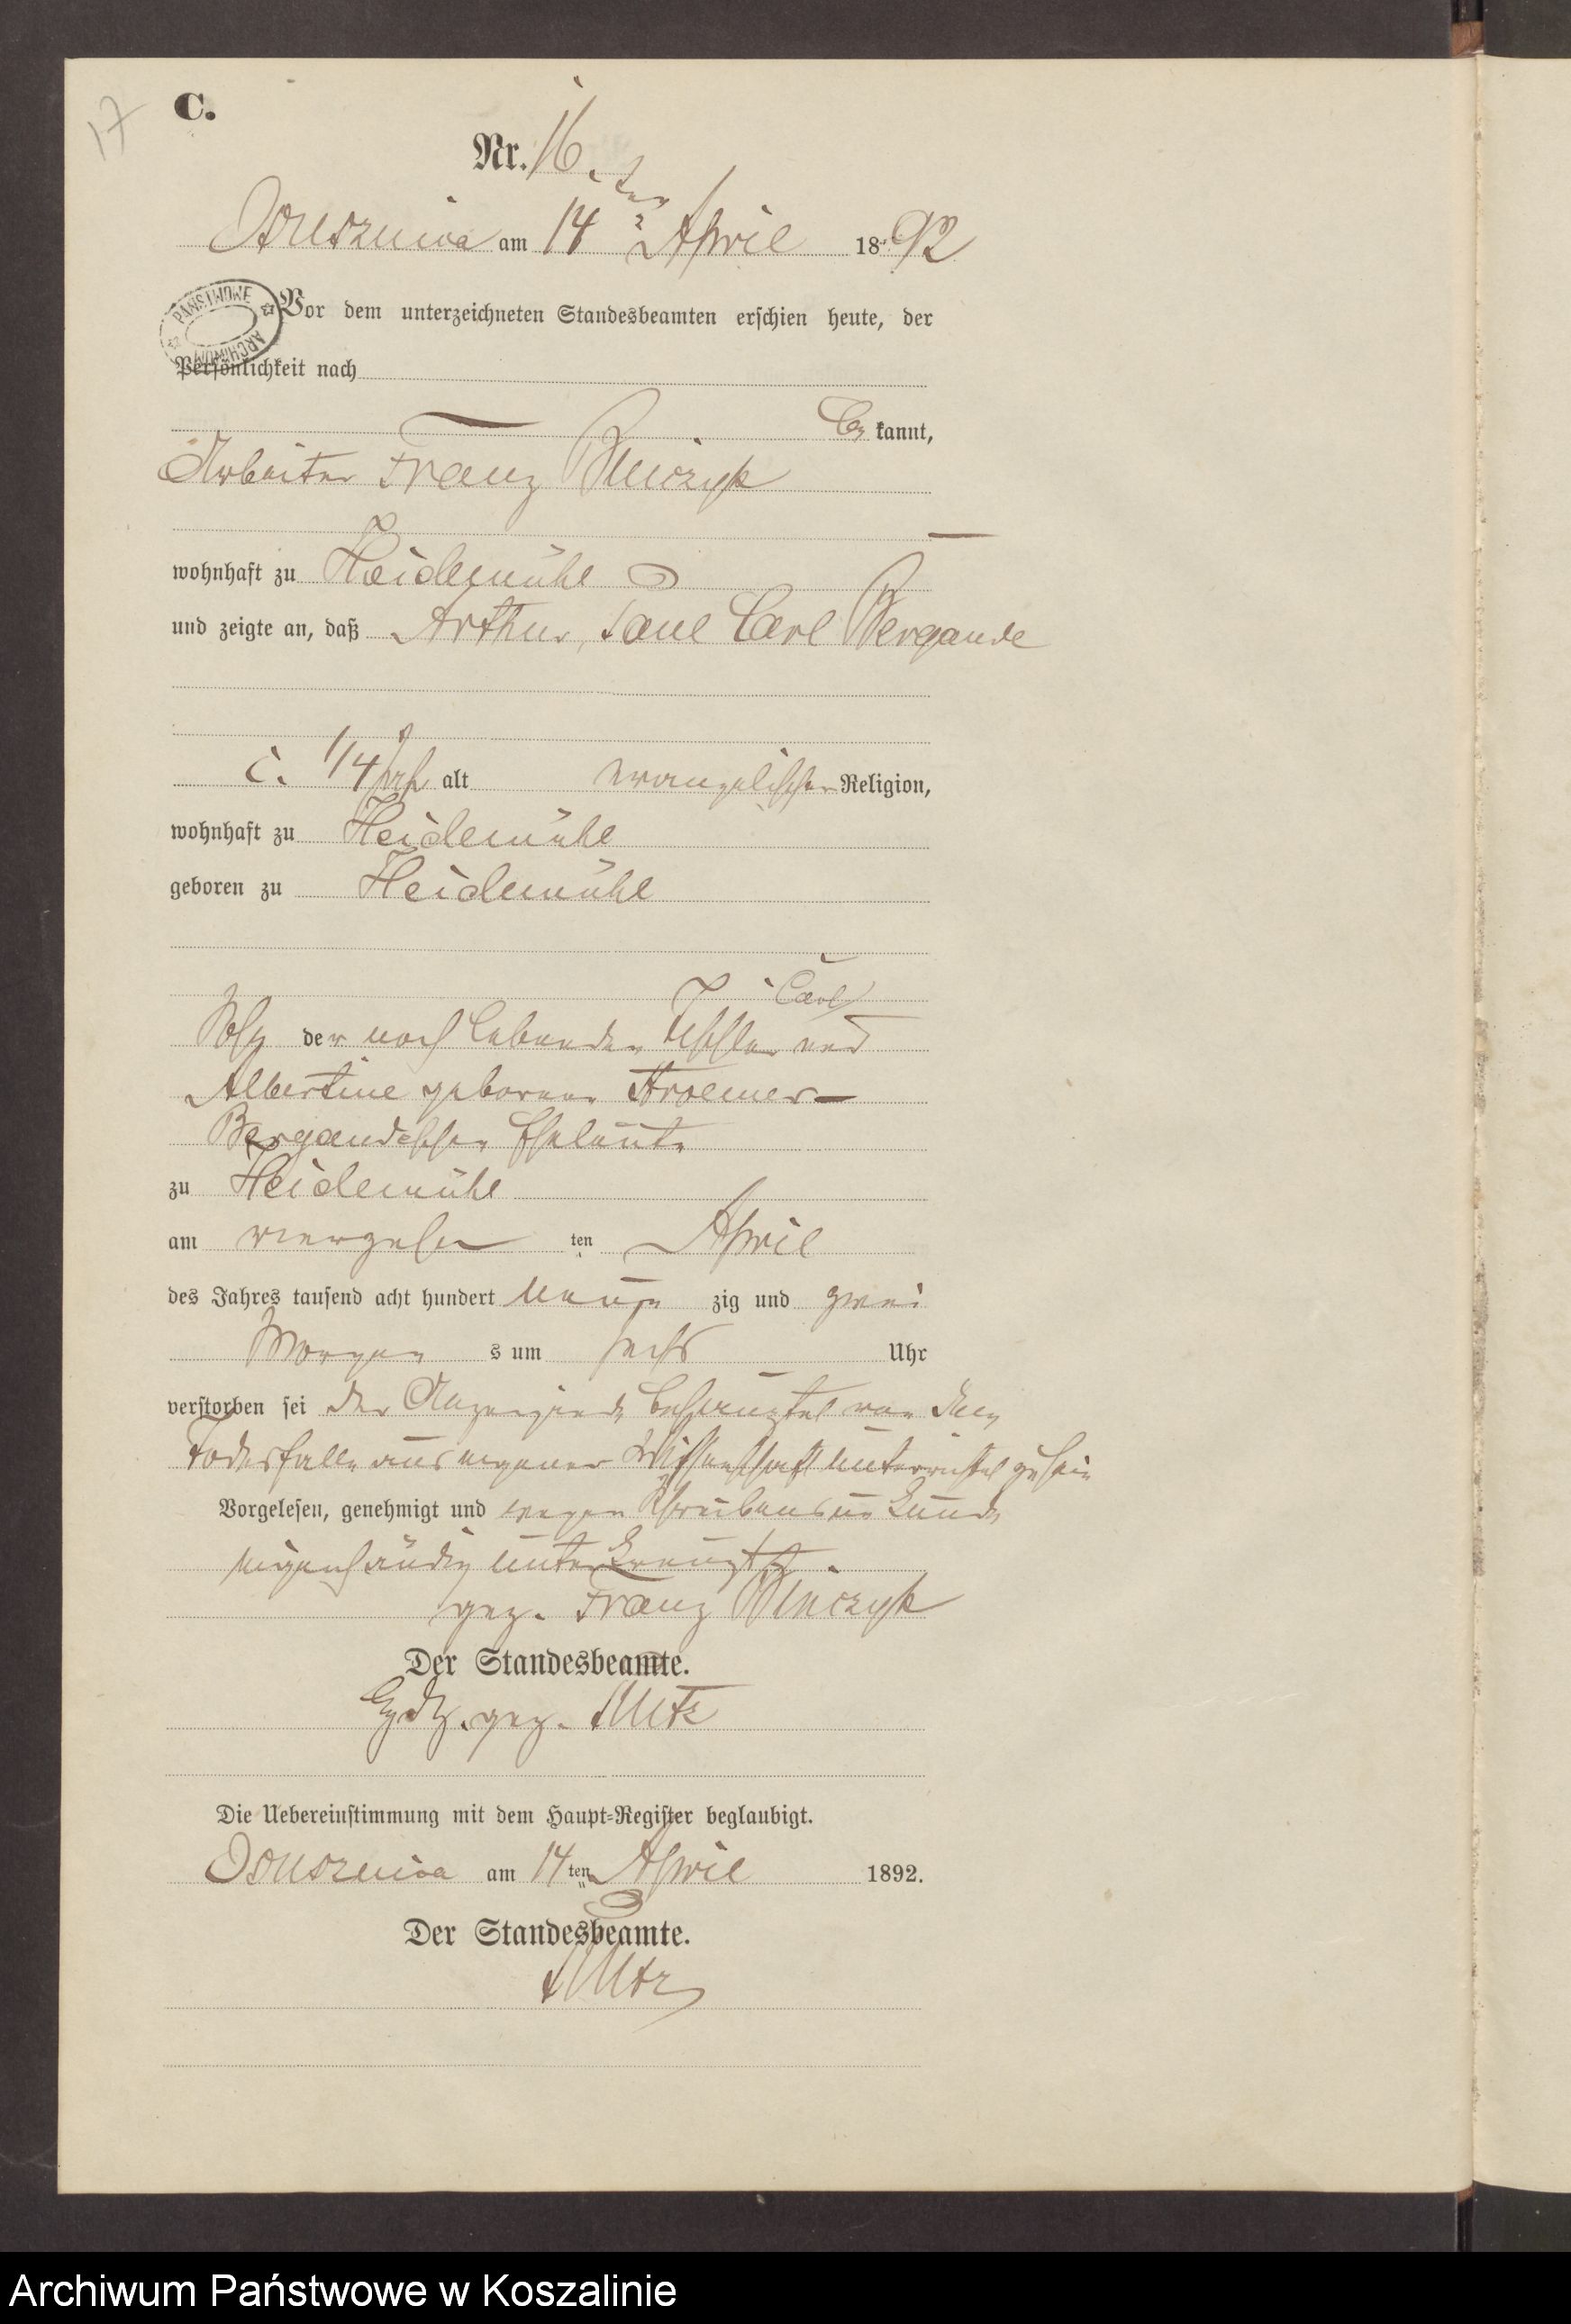 17
C.
Nr. 16.
Osusznica am 14ten April 1892
PAŃSTWOWE ARCHIWUM
Vor dem unterzeichneten Standesbeamten erschien heute, der
Persönlichkeit nach
be kannt,
Arbeiter Franz
wohnhaft zu Heidemühl
und zeigte an, daß Arthur, Paul Carl Bergande
c. 1/4 Jahr alt evangelischer Religion,
wohnhaft zu Heidemühl
geboren zu Heidemühl
Carl
Sohn der noch lebenden Tischler und
Albertine geborene Kroemer-
Bergandeschen Eheleute
zu Heidemühl
am vierzehn ten April
des Jahres tausend acht hundert neun zig und zwei
Morgen s um sechs Uhr
verstorben sei der Anzeigende behauptet von dem
Todesfalle aus eigener Wissenschaft unterrichtet zu sein
Vorgelesen, genehmigt und wegen Schreibensunkunde
eigenhändig unterkreuzt
gez. Franz
Der Standesbeamte.
gez.
Die Uebereinstimmung mit dem Haupt-Register beglaubigt.
Osusznica am 14ten April 1892.
Der Standesbeamte.
Archiwum Państwowe w Koszalinie